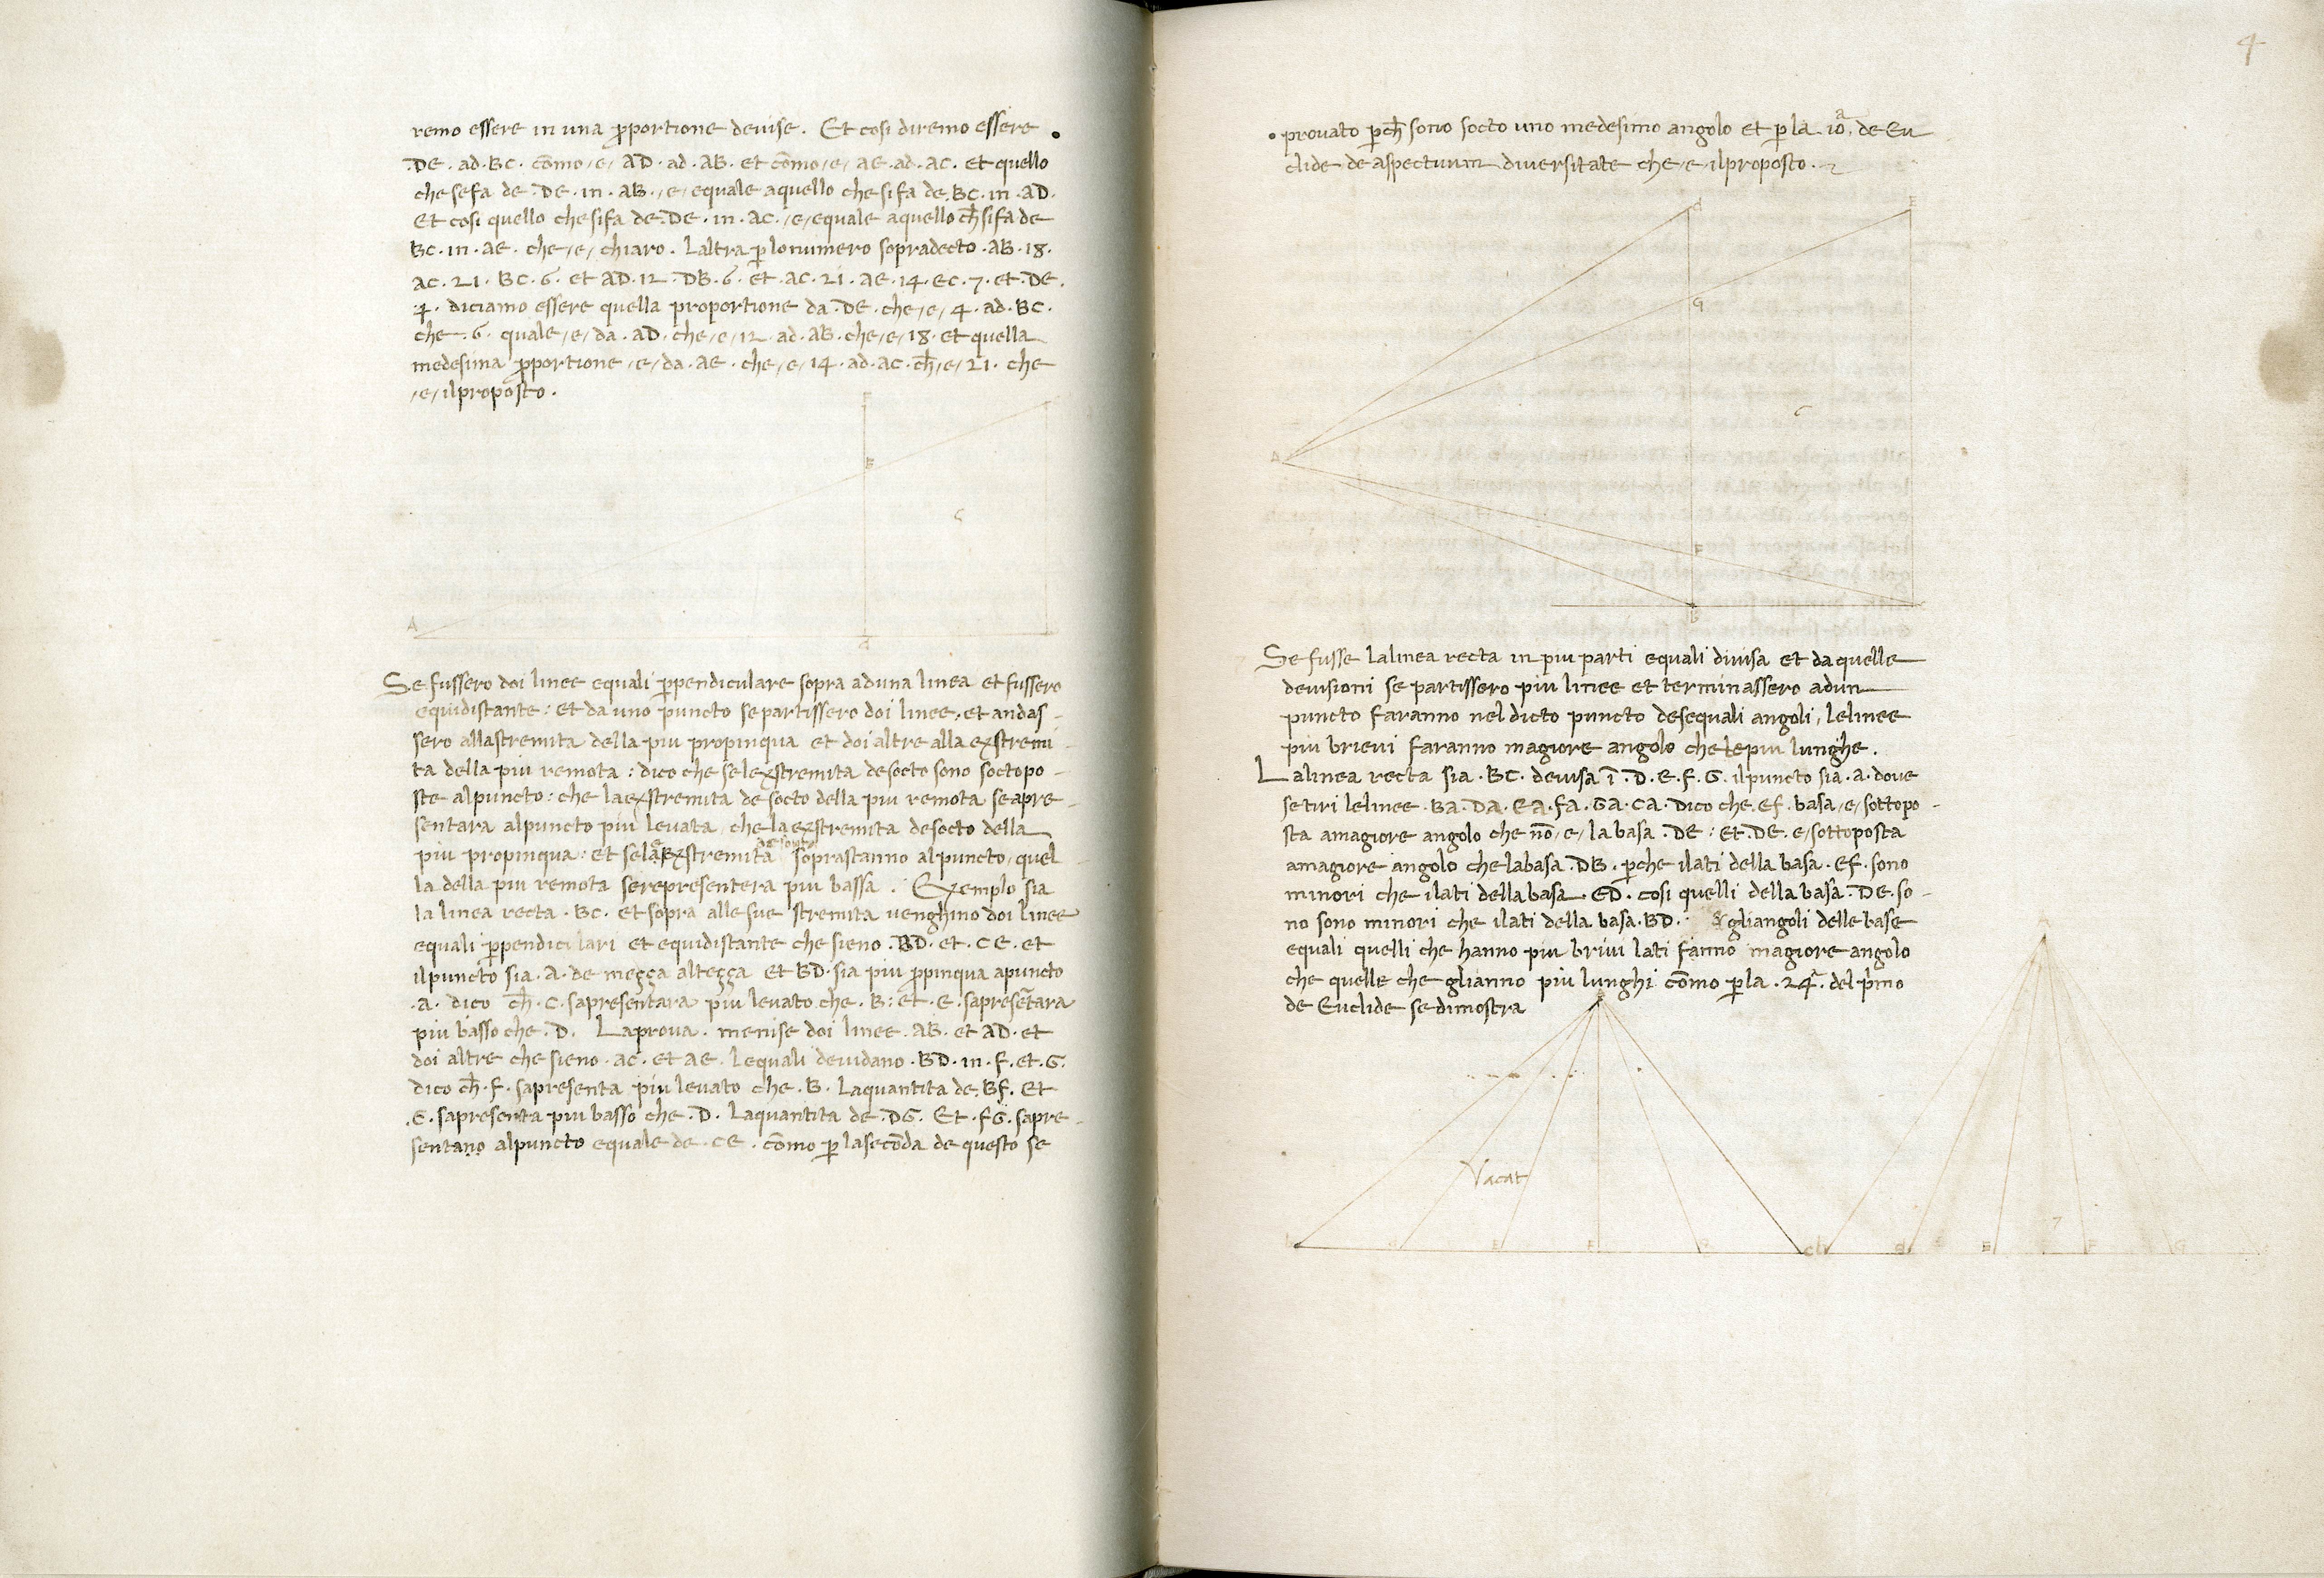 remo essere in una ꝓportione deuise. Et cosi diremo essere
.DE. ad. BC. cōmo, e, AD. ad. AB. et cōmo, e, AE. ad. AC. Et quello
che se fa de .DE. in. AB., e, equale aquello che si fa de. BC. in. AD.
Et cosi quello che si fa de. DE. in. AC., e, equale aquello ch̄ si fa de
BC. in. AE. che, e, chiaro. Laltra ꝑ lo numero sopradecto. AB. 18.
AC. 21. BC. 6. et AD. 12 DB. 6. et. AC. 21. AE. 14. EC. 7. et. DE.
.4. diciamo essere quella proportione da. DE. che, e, 4. ad. BC.
che. 6. quale, e, da. AD. che, e, 12. ad. AB. che, e, 18. et quella
medesima ꝓportione, e, da. AE. che, e, 14. ad. AC. ch̄, e, 21. che
, e, il proposto.
A
F
Se fussero doi linee equali ꝑpendiculare sopra ad una linea et fussero
equidistante: et da uno puncto se partissero doi linee, et andas-
sero allastremita della piu propinqua et doi altre alla exstremi-
ta della piu remota: dico che se lexstremita desocto sono soctopo-
ste al puncto: che la exstremita de socto della piu remota se apre-
sentara al puncto piu levata, che la exstremita desocto della
piu propinqua: et se la exstremita soprastanno al puncto, quel
la della piu remota se representera piu bassa. Exemplo sia
la linea recta. BC. et sopra alle sue stremita venghino doi linee
equali ꝑpendiculari et equidistante che sieno. BD. et. CE. et
il puncto sia. A. de meçça alteçça et BD. sia piu ꝓpinqua apuncto
.A. dico ch̄. C. sapresentara piu levato che. B: et. E. sapresētara
piu basso che. D. La prova. menise doi linee. AB. et AD. et
doi altre che sieno. AC. et AE. lequali devidano. BD. in. F. et. G.
dico ch̄. F. sapresenta piu levato che. B. la quantita de. BF. Et
.E. sapresenta piu basso che. D. la quantita de. DG. Et. FG. sapre-
sentano al puncto equale de. CE. cōmo ꝑ la secōda de questo se
4
provato ꝑch̄ sono socto uno medesimo angolo et ꝑ la 10ª. de Eu
clide de aspectuum diversitate che, e, il proposto.
E
G
A
F
Se fusse la linea recta in piu parti equali divisa et da quelle
devisioni se partissero piu linee et terminassero ad un
puncto faranno nel dicto puncto desequali angoli, le linee
piu brievi faranno magiore angolo che le piu lunghe.
La linea recta sia. BC. devisa ī. D. E. F. G. il puncto sia. A. dove
se tiri le linee. BA. DA. EA. FA. GA. CA. Dico che. EF. basa, e, sottopo-
sta amagiore angolo che nō, e, la basa. DE: Et. DE. e, sottoposta
amagiore angolo che la basa. DB. ꝑche i lati della basa. EF. sono
minori che i lati della basa. ED. cosi quelli della basa. DE. so-
no sono minori che i lati della basa. BD. & gli angoli delle base
equali quelli che hanno piu brivi lati fanno magiore angolo
che quelle che gli anno piu lunghi cōmo ꝑ la. 24ª. del p̄mo
de Euclide se dimostra
Vacat
E
F
C
E
F
7